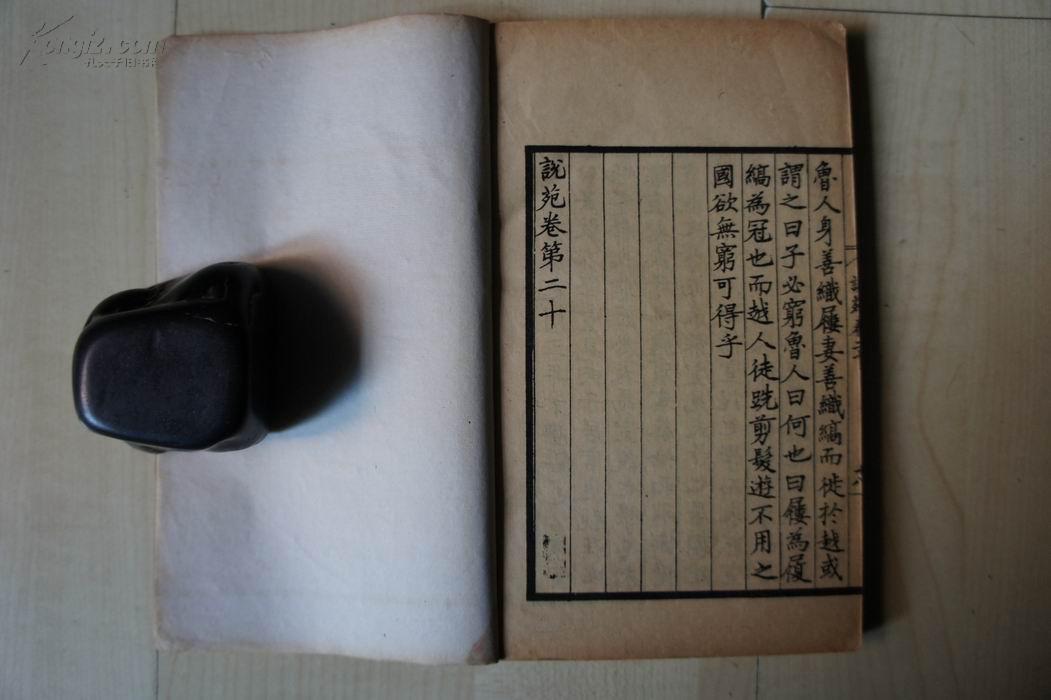 魯人身善織屨妻善織縞而徙於越或
謂之曰子必窮魯人曰何也曰屨為履
縞為冠也而越人徒跣剪髮遊不用之
國欲無窮可得乎
說苑卷第二十
Kongfz.com
孔夫子旧书网